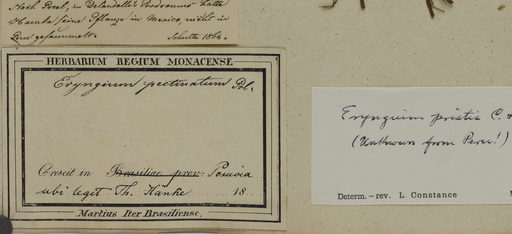 Nach Presl, in Delandolle's Prodromus hatte
Haenke seine Pflanze in Mexico, nicht in
Peru gesammelt. Schultz 1864.
HERBARIUM REGIUM MONACENSE
Eryngium pectinatum Prl.
Crescit in Brasiliae prov. Peruvia
ubi legit Th. Hänke 18
Martius Iter Brasiliense.
Eryngium pristis C. &
(Unknown from Peru!)
Determ.-rev. L. Constance